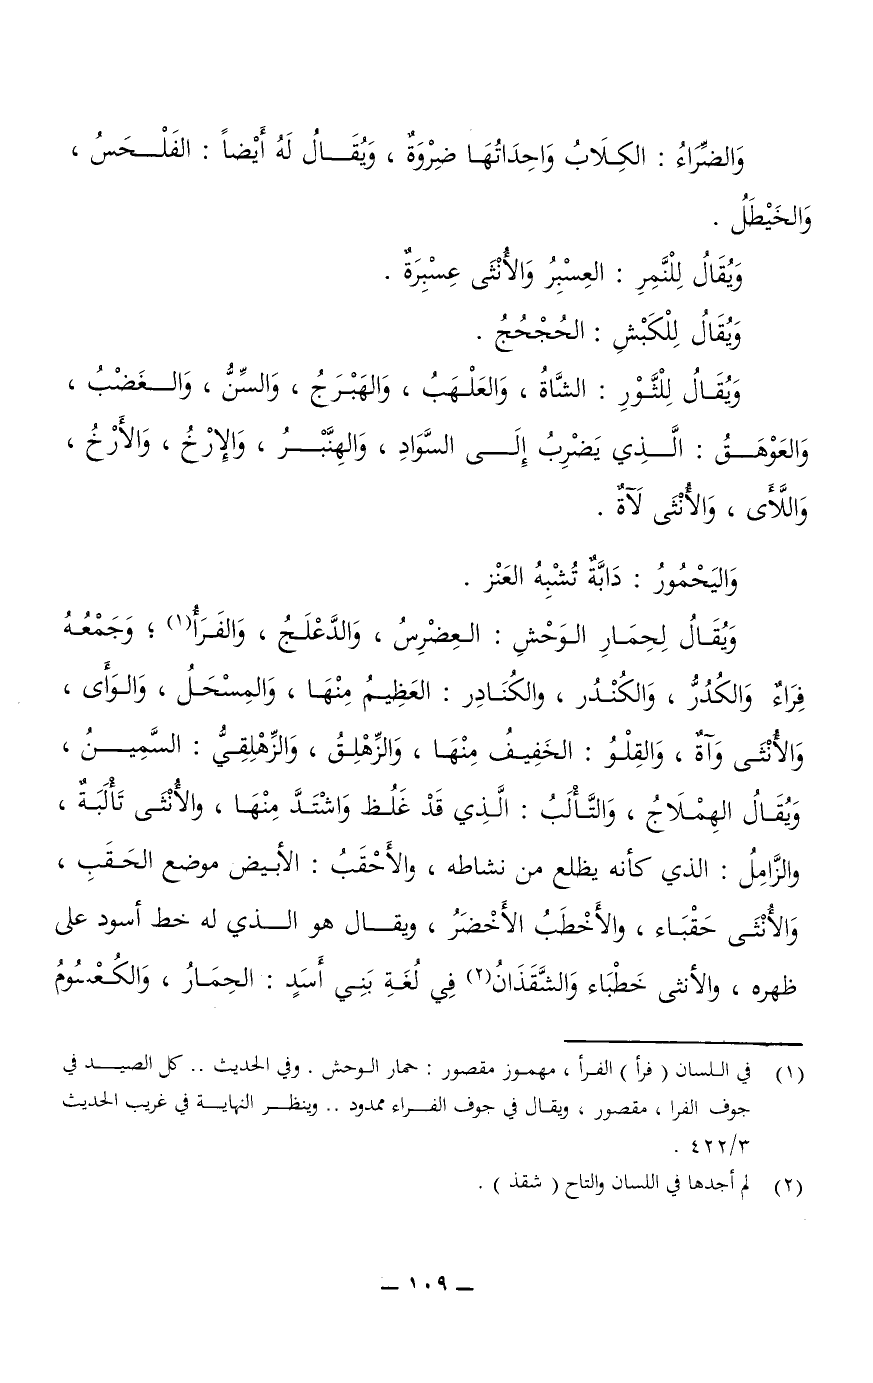 وَالضِّرَاءُ : الكِلَابُ وَاحِدَاتُهَا ضِرْوَةٌ ، وَيُقَالُ لَهُ أَيْضاً : الفَلْحَسُ ،
وَالخَيْطَلُ .
وَيُقَالُ لِلْنَّمِرِ : العِسْبِرُ وَالأُنْثَى عِسْبِرَةٌ .
وَيُقَالُ لِلْكَبْشِ : الحُجْحُجُ .
وَيُقَالُ لِلْثَّوْرِ : الشَّاةُ ، وَالعَلْهَبُ ، وَالهَبْرَجُ ، وَالسِّنُّ ، وَالغَضْبُ ،
وَالعَوْهَقُ : الَّذِي يَضْرِبُ إِلَى السَّوَادِ ، وَالهِنَّبْرُ ، وَالإِرْخُ ، وَالأَرْخُ ،
وَاللَّأَى ، وَالأُنْثَى لَآةٌ .
وَاليَحْمُورُ : دَابَّةٌ تُشْبِهُ العَنْز .
وَيُقَالُ لِحِمَارِ الوَحْشِ : العِضْرِسُ ، وَالدَّعْلَجُ ، وَالفَرَأُ(١) ؛ وَجَمْعُهُ
فِرَاءٌ وَالكُدُرُّ ، وَالكُنْدُر ، والكُنَادِر : العَظِيمُ مِنْهَا ، وَالمِسْحَلُ ، وَالوَأَى ،
وَالأُنْثَى وَآةٌ ، وَالقِلْوُ : الخَفِيفُ مِنْهَا ، وَالزِّهْلِقُ ، وَالزِّهْلِقِيُّ : السَّمِينُ ،
وَيُقَالُ الهِمْلَاجُ ، وَالتَّأْلَبُ : الَّذِي قَدْ غَلُظ وَاشْتَدَّ مِنْهَا ، والأُنْثَى تَأْلَبَةٌ ،
والزَّامِلُ : الذي كأنه يظلع من نشاطه ، والأَحْقَبُ : الأبيض موضع الحَقَبِ ،
وَالأُنْثَى حَقْبَاء ، والأَخْطَبُ الأَخْضَرُ ، ويقال هو الذي له خط أسود على
ظهره ، والأنثى خَطْبَاء وَالشَّقَذَانُ(٢) فِي لُغَةِ بَنِي أَسَدٍ : الحِمَارُ ، وَالكُعْسُومُ
(١) في اللسان ( فرأ ) الفرأ ، مهموز مقصور : حمار الوحش . وفي الحديث .. كل الصيد في
جوف الفرا ، مقصور ، ويقال في جوف الفراء ممدود .. وينظر النهاية في غريب الحديث
٤٢٢/٣ .
(٢) لم أجدها في اللسان والتاج ( شقذ ) .
ــ ١٠٩ ــ